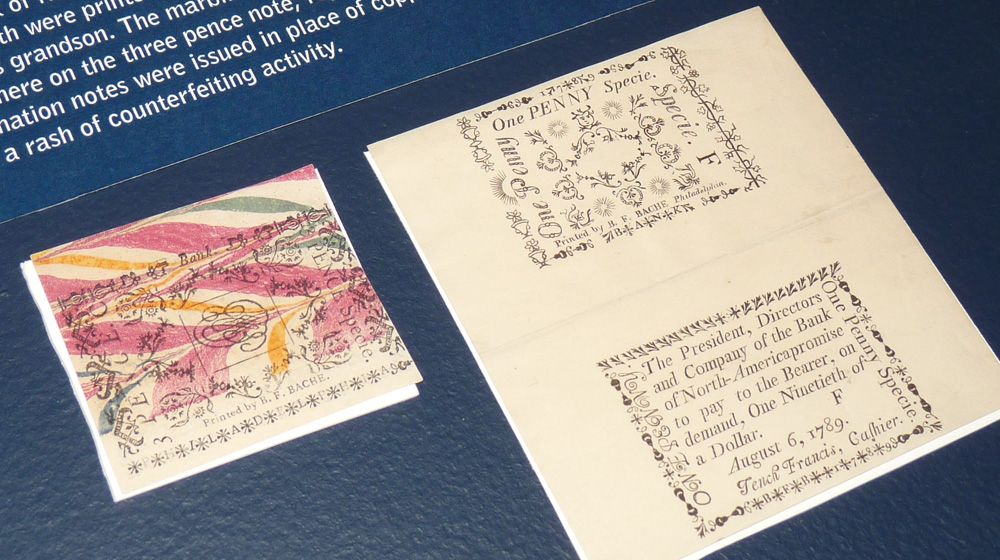 th were printe
grandson. The marbl
here on the three pence note,
nation notes were issued in place of copp
a rash of counterfeiting activity.
Bank
Specie.
Printed by B. F. BACHE.
P*H*I*L*A*D*E*L*P*H*I*A
3
1789
One PENNY Specie.
Specie. F
One Penny
Printed by B. F. BACHE Philadelphia.
B*A*N*K
The President, Directors
and Company of the Bank
of North-Americapromise
to pay to the Bearer, on
demand, One Ninetieth of
a Dollar. F
August 6, 1789.
Tench Francis, Cashier.
One Penny Specie.
*B*F*B*1*7*8*9*